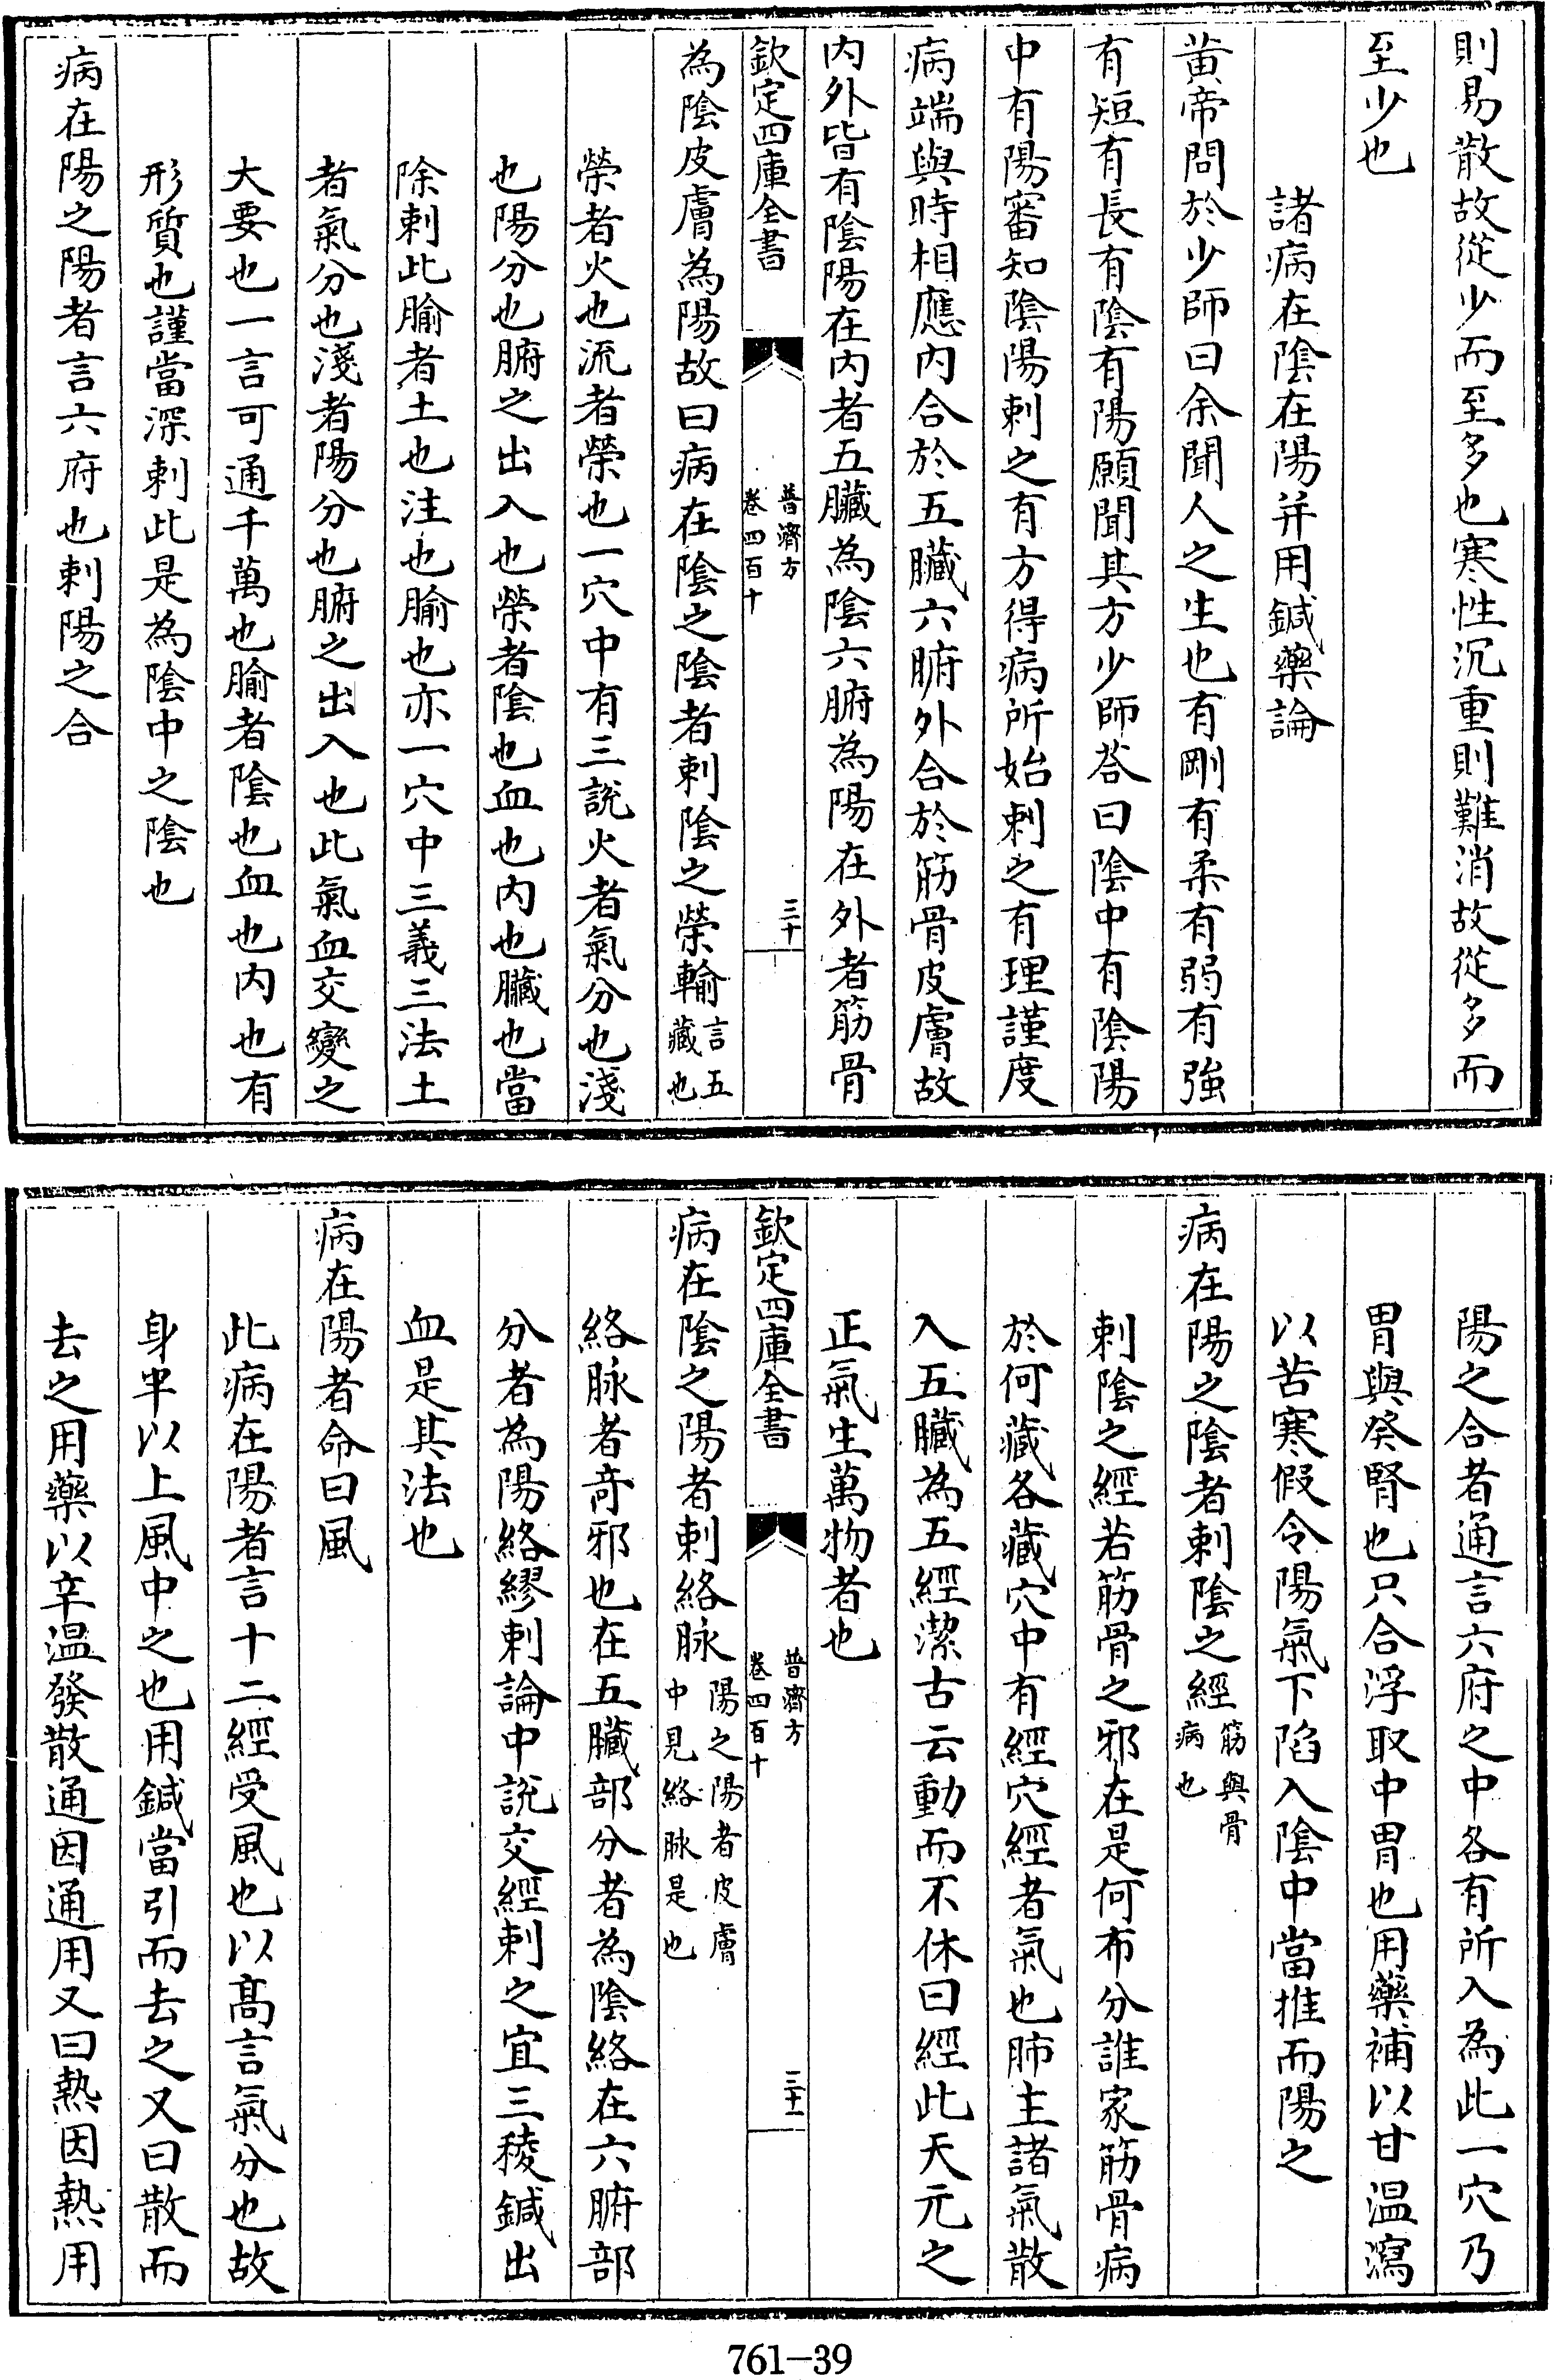 則易散故從少而至多也寒性沉重則難消故從多而
至少也
諸病在陰在陽并用鍼藥論
黄帝問於少師曰余聞人之生也有剛有柔有弱有強
有短有長有陰有陽願聞其方少師荅曰陰中有陰陽
中有陽審知陰陽刺之有方得病所始刺之有理謹度
病端與時相應内合於五臟六腑外合於筋骨皮膚故
内外皆有陰陽在内者五臟為陰六腑為陽在外者筋骨
欽定四庫全書
普濟方
卷四百十
三十
為陰皮膚為陽故曰病在陰之陰者刺陰之榮輸言五
藏也
榮者火也流者榮也一穴中有三說火者氣分也淺
也陽分也腑之出入也榮者陰也血也内也臟也當
除刺此腧者土也注也腧也亦一穴中三義三法土
者氣分也淺者陽分也腑之出入也此氣血交變之
大要也一言可通千萬也腧者陰也血也内也有
形質也謹當深刺此是為陰中之陰也
病在陽之陽者言六府也刺陽之合
陽之合者通言六府之中各有所入為此一穴乃
胃與癸腎也只合浮取中胃也用藥補以甘温瀉
以苦寒假令陽氣下陷入陰中當推而陽之
病在陽之陰者刺陰之經筋與骨
病也
刺陰之經若筋骨之邪在是何布分誰家筋骨病
於何藏各藏穴中有經穴經者氣也肺主諸氣散
入五臟為五經潔古云動而不休曰經此天元之
正氣生萬物者也
欽定四庫全書
普濟方
卷四百十
三十一
病在陰之陽者刺絡脉陽之陽者皮膚
中見絡脉是也
絡脉者竒邪也在五臟部分者為陰絡在六腑部
分者為陽絡繆刺論中說交經刺之宜三稜鍼出
血是其法也
病在陽者命曰風
此病在陽者言十二經受風也以髙言氣分也故
身半以上風中之也用鍼當引而去之又曰散而
去之用藥以辛温發散通因通用又曰熱因熱用
761-39